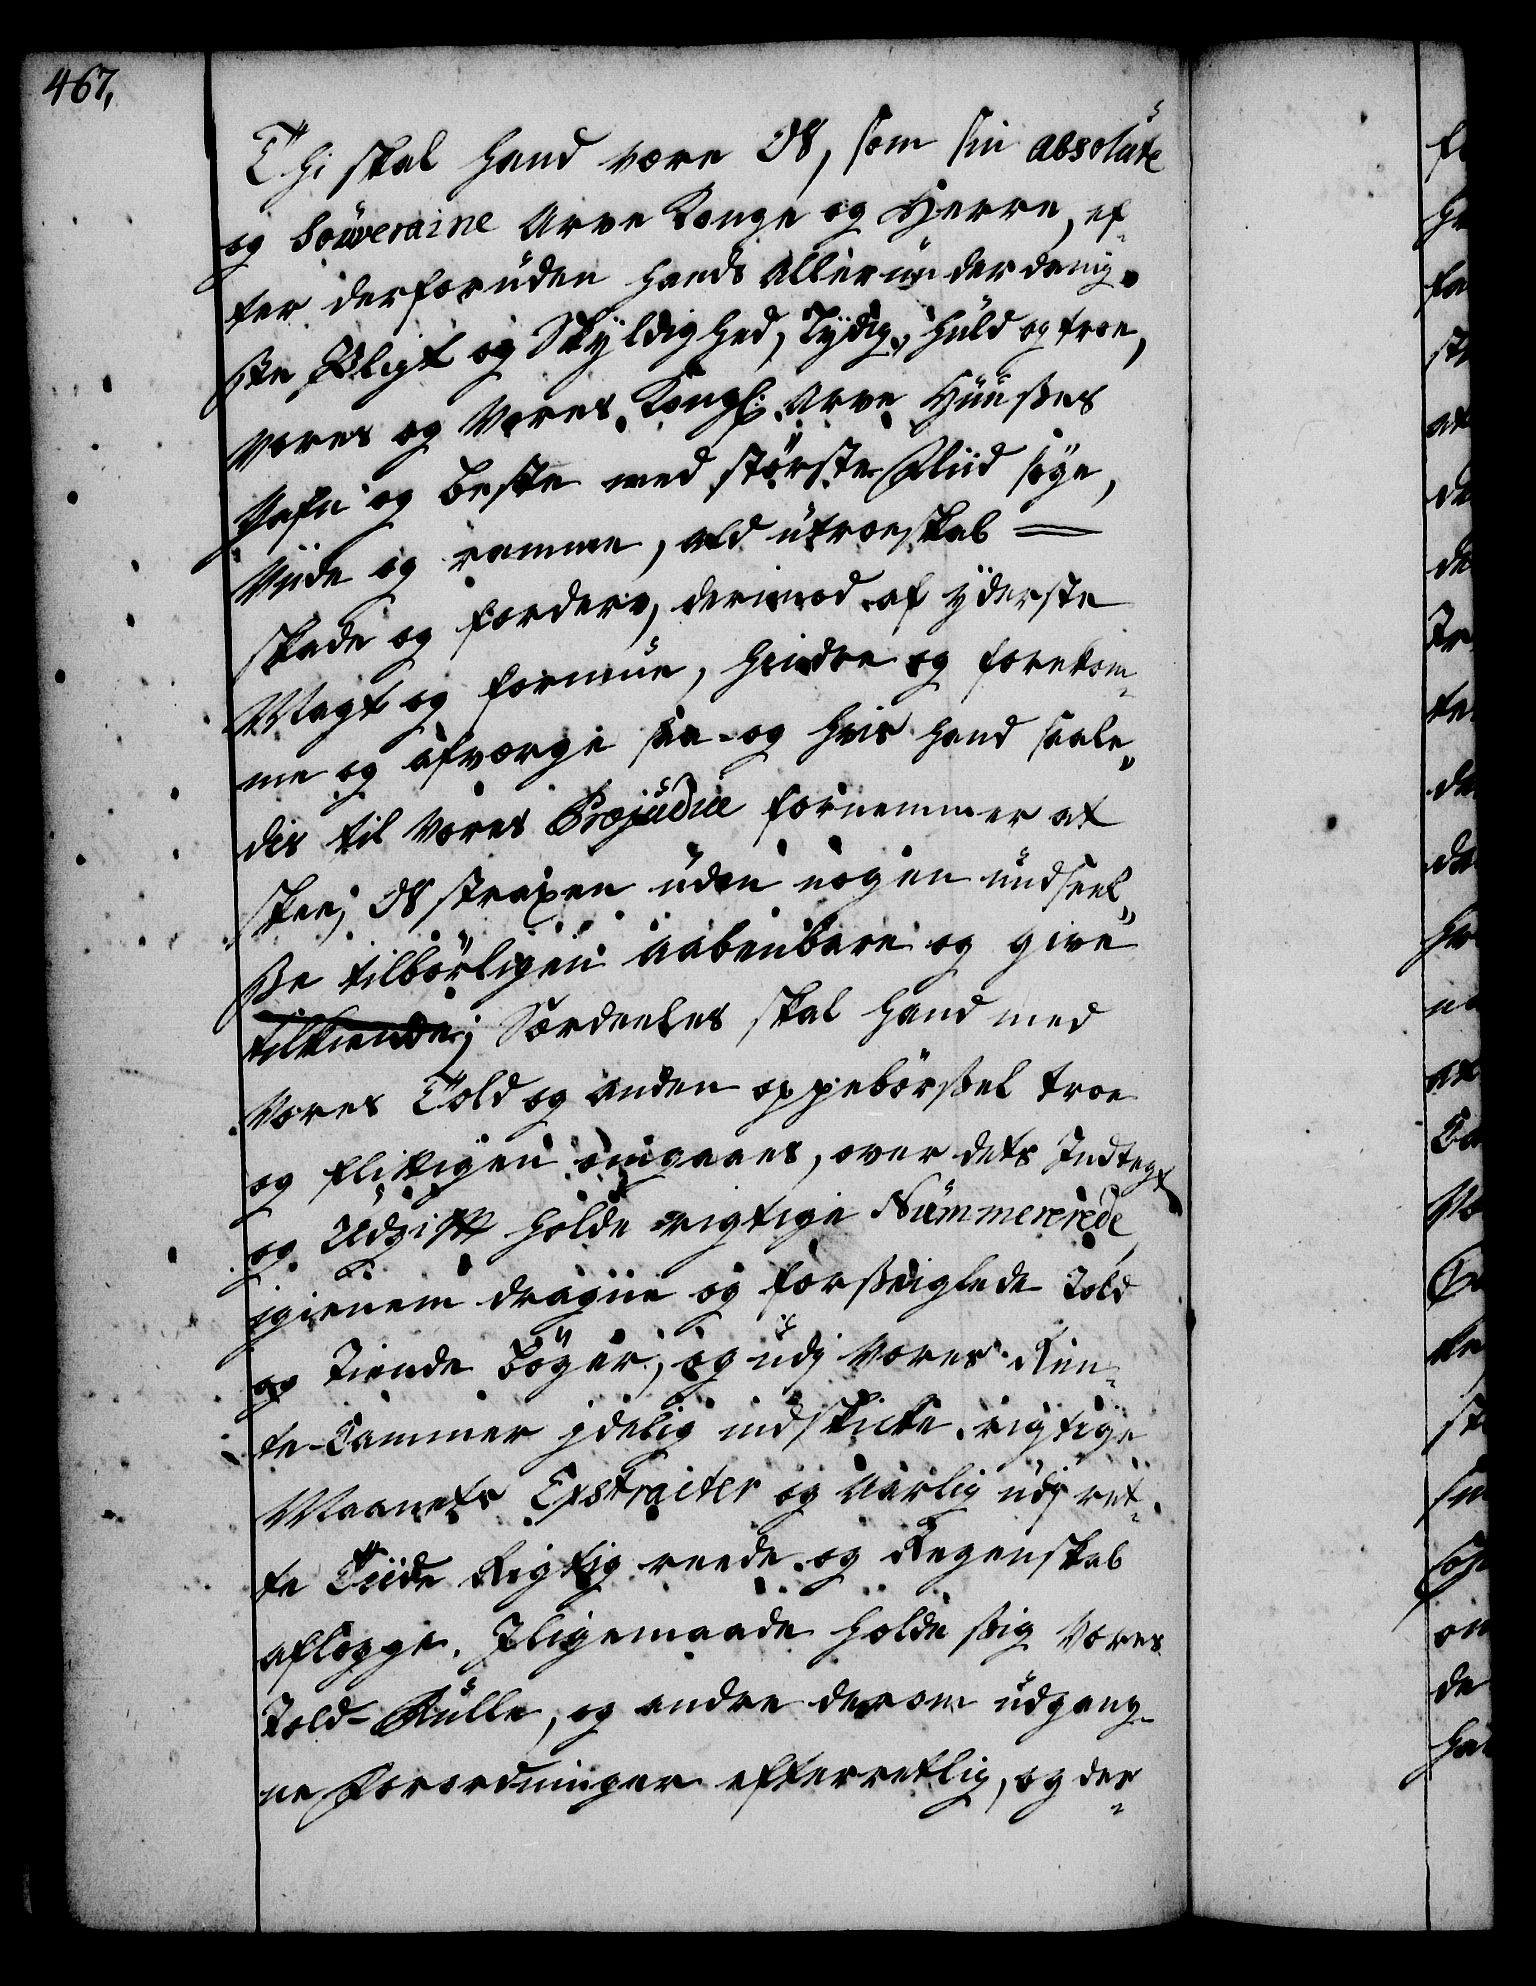 467,
Thi skal hand være Os, som sin absolute
og Souveraine Arve Konge og Herre, ef-
ter derforuden hands allerunderdanig-
ste Pligt og Skyldighed, Lydig, huld og troe,
Vores og Vores Kongl: Arve Huußes
Gafn og beste med störste Fliid söge,
Viide og ramme, ald utroeskab
skade og forderv, derimod af yderste
Magt og formue, hindre og forekom-
me og afværge saa og hvis hand saale-
dis til Vores Præjudice fornemmer at
skee, Os straxen uden nogen undseel-
ße tilbörligen aabenbare og give
tilkiende; Særdeeles skal hand med
Vores Told og anden oppebörßel troe
og flittigen omgaaes, over dets Indtegt
og Udgift holde rigtige Nummererede
igienem dragne og forßeiglede Told
og Tiende Böger, og udj Vores Ren-
te-Cammer jdelig indskicke rigtige
Maanets Exstracter og Aarlig udj ret-
te Tiide Rigtig reede og Regenskab
aflegge. Jligemaade holde sig Vores
Told-Rulle, og andre derom udgang-
ne Forordninger efterretlig, og der-